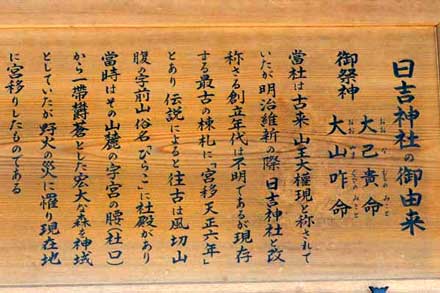 日吉神社の御由来
御祭神
大己貴命
おおなむちのみこと
大山咋命
おおやまくいのみこと
当社は古来 山王大権現と称されて
いたが明治維新の際 日吉神社と改
称さる創立年代は不明であるが現存
する最古の棟札に「宮移天正六年」
とあり 伝説によると往古は風切山
腹の字前山俗名「びらこ」に社殿があり
當時はその山麓の字宮の腰(社口)
から一帯欝蒼とした宏大な森を神域
としていたが野火の災に罹り現在地
に宮移りしたものである